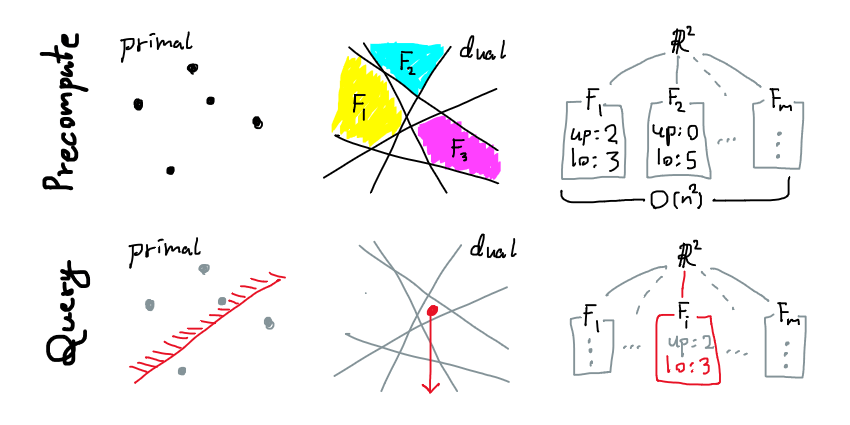 Precompute
primal
dual
F₁
F₂
F₃
ℝ²
F₁
up:2
lo:3
F₂
up:0
lo:5
...
Fm
⋮
O(n²)
Query
primal
dual
ℝ²
F₁
⋮
...
Fᵢ
up=2
lo:3
...
Fm
⋮